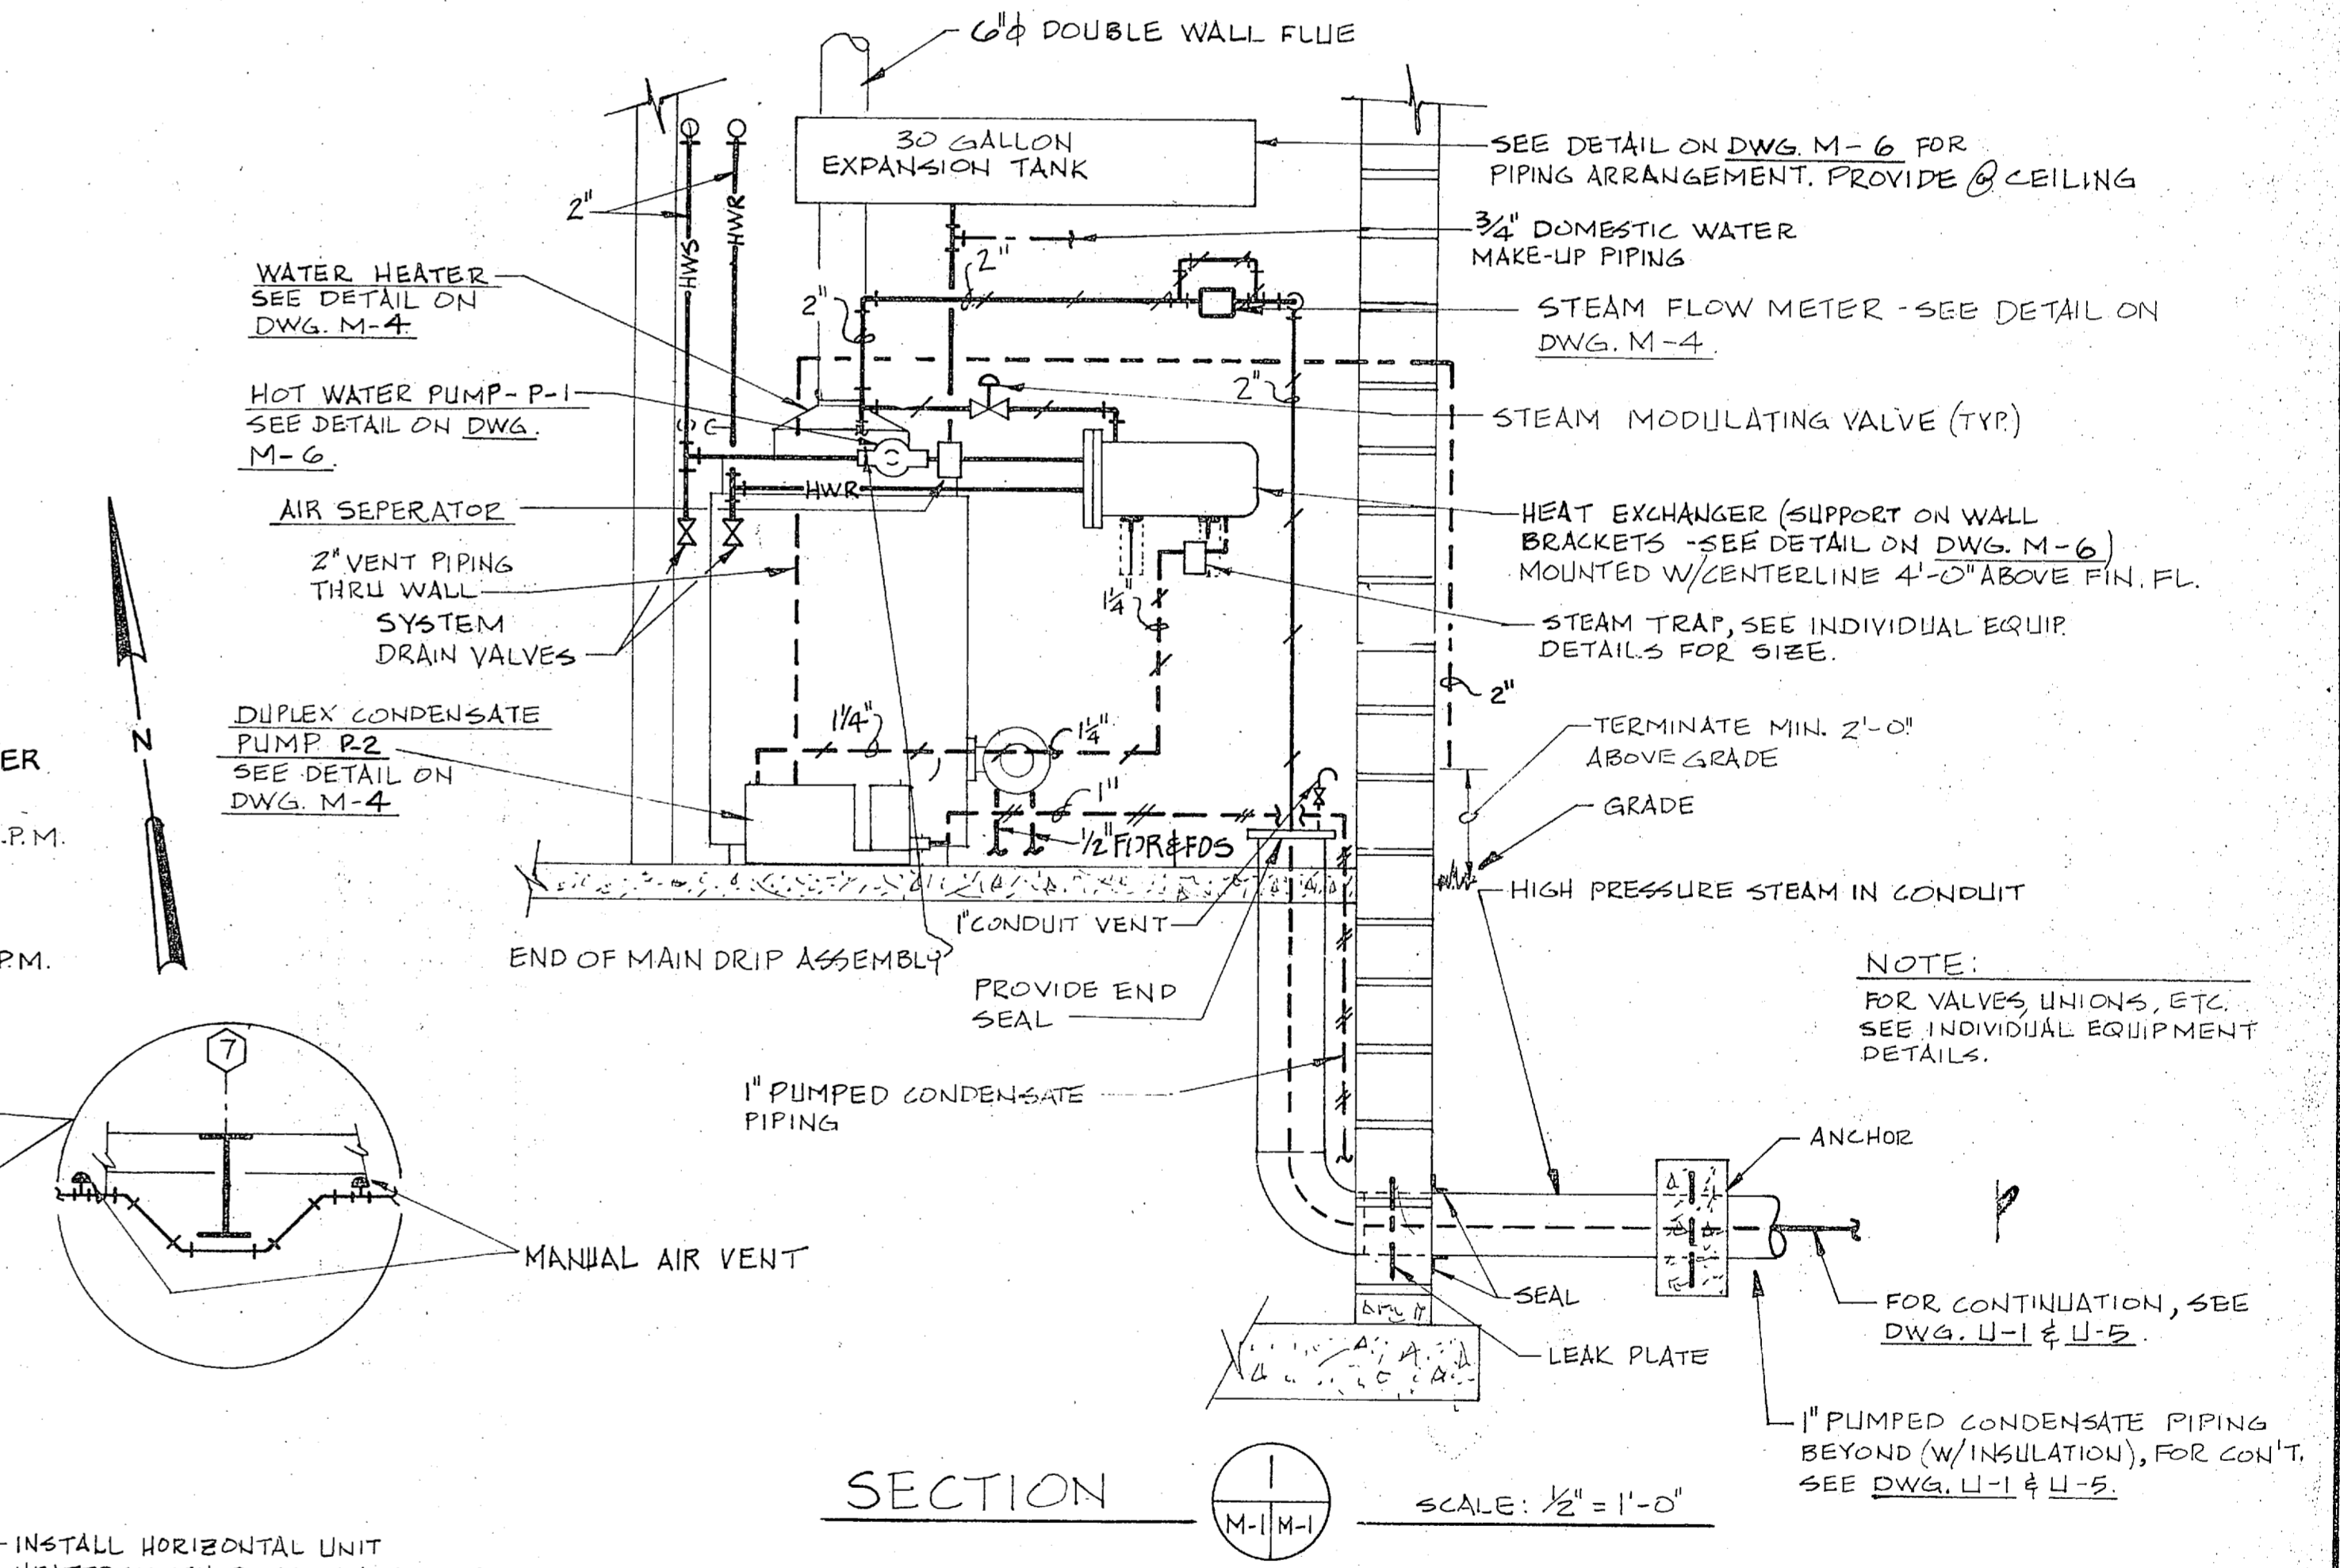 6"φ DOUBLE WALL FLUE
30 GALLON
EXPANSION TANK
SEE DETAIL ON DWG. M-6 FOR
PIPING ARRANGEMENT. PROVIDE @ CEILING
2"
HWS
HWR
3/4" DOMESTIC WATER
MAKE-UP PIPING
WATER HEATER
SEE DETAIL ON
DWG. M-4
2"
2"
STEAM FLOW METER - SEE DETAIL ON
DWG. M-4
HOT WATER PUMP - P-1
SEE DETAIL ON DWG.
M-6
2"
STEAM MODULATING VALVE (TYP.)
HWR
AIR SEPERATOR
HEAT EXCHANGER (SUPPORT ON WALL
BRACKETS - SEE DETAIL ON DWG. M-6)
MOUNTED W/CENTERLINE 4'-0" ABOVE FIN. FL.
2" VENT PIPING
THRU WALL
1 1/4"
SYSTEM
DRAIN VALVES
STEAM TRAP, SEE INDIVIDUAL EQUIP.
DETAILS FOR SIZE.
2"
DUPLEX CONDENSATE
PUMP P-2
SEE DETAIL ON
DWG. M-4
1 1/4"
1 1/4"
TERMINATE MIN. 2'-0"
ABOVE GRADE
1"
GRADE
1/2" FOR & FOS
HIGH PRESSURE STEAM IN CONDUIT
1" CONDUIT VENT
END OF MAIN DRIP ASSEMBLY
PROVIDE END
SEAL
NOTE:
FOR VALVES, UNIONS, ETC.
SEE INDIVIDUAL EQUIPMENT
DETAILS.
N
ER
.P.M.
P.M.
7
1" PUMPED CONDENSATE
PIPING
ANCHOR
MANUAL AIR VENT
SEAL
LEAK PLATE
FOR CONTINUATION, SEE
DWG. U-1 & U-5.
1" PUMPED CONDENSATE PIPING
BEYOND (W/INSULATION), FOR CON'T.
SEE DWG. U-1 & U-5.
SECTION
1
M-1 M-1
SCALE: 1/2" = 1'-0"
INSTALL HORIZONTAL UNIT